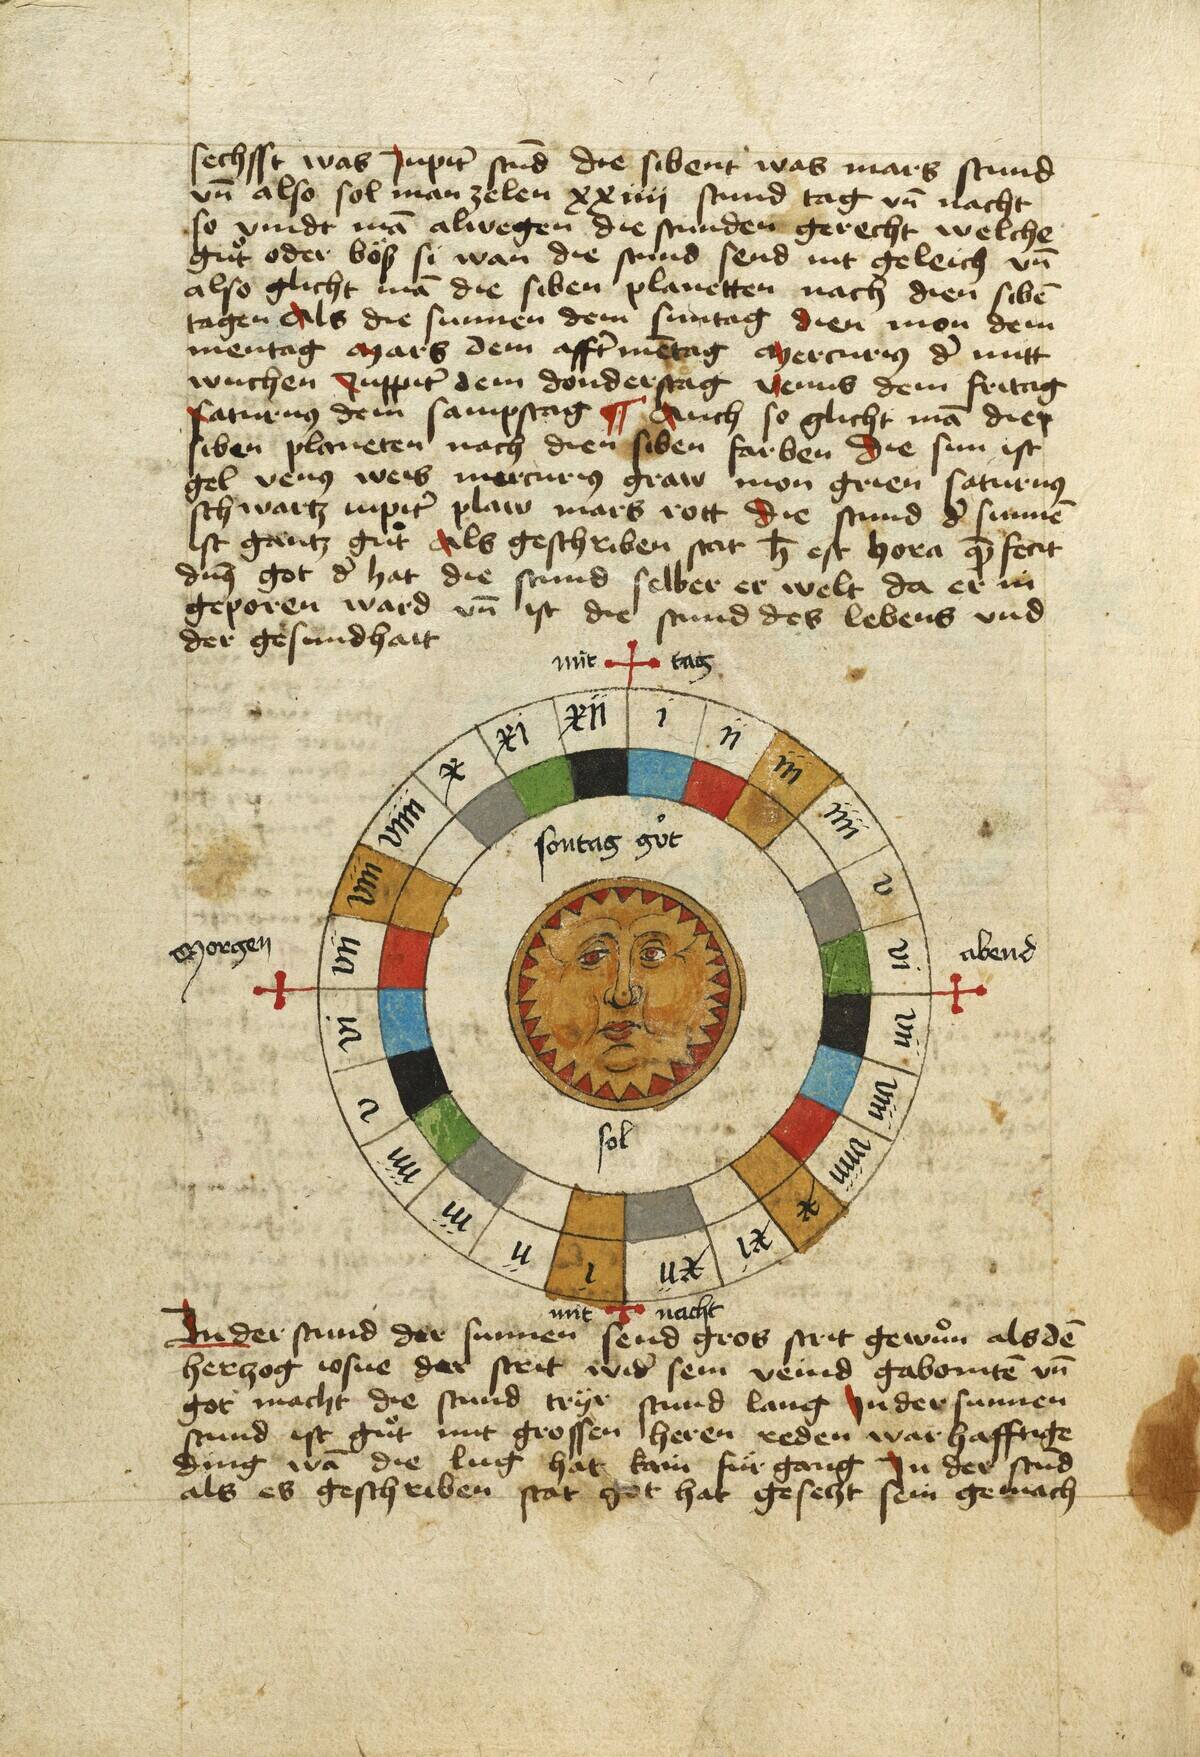 sechsst was Jupit̄ stūd die sibent was mars stund
vn̄ also sol man zelen xxiiii stund tag vn̄ nacht
so vindt mā alwegen die stunden gerecht welche
guͦt oder böß si wan die stund send nit geleich vn̄
also glicht mā die siben planetten nach dien sibē
tagen Als die sunnen dem suntag dien mon dem
mentag Mars dem afft̄mētag Mercuriꝰ d̄ mitt
wuchen Juppit̄ dem donderstag venus dem fritag
Saturnꝰ dem sampstag ¶ Auch so glicht mā die
siben planeten nach dien siben farben Die sun ist
gel venꝰ weis mercuriꝰ graw mon grien saturnꝰ
schwartz iupit̄ plaw mars rott die stund d̄ sunnē
ist gantz guͦt Als geschriben stat h̄ est hora q̄ fecit
dn̄s got d̄ hat die stund selber er welt da er in
geporen ward vn̄ ist die stund des lebens vnd
der gesundhait
mit tag
xii i ii iii iiii v vi vii viii viiii x xi xii i ii iii iiii v vi vii viii viiii x xi
sontag guͦt
Morgen abend
sol
mit nacht
In der stund der sunnen send gros strit gewuͦn als dē
hertzog iosue der strit wid̄ sein veind gabomitē vn̄
got macht die stund tryͤr stund lang In der sunnen
stund ist guͦt mit grossen heren reden warhafftige
ding wā die lug hat kain für gang In der stūd
als es geschriben stat got hat gesetzt sein gemach